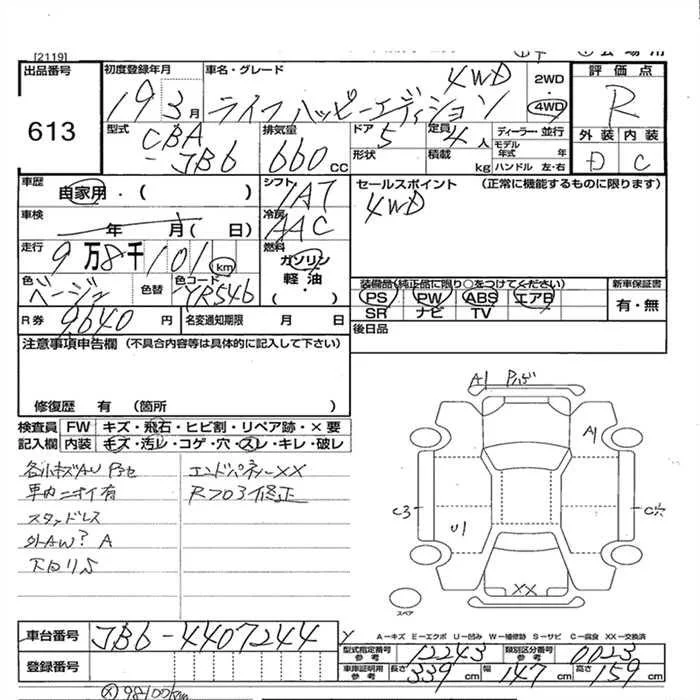 [2119]
出品番号
613
初度登録年月
19 3月
車名・グレード
ライフ ハッピーエディション 4WD
2WD
・
4WD
評価点
R
外装 内装
D C
型式
CBA
-JB6
排気量
660 CC
ドア 5
形状
定員 4人
積載 kg
ディーラー・並行
モデル年式 年
ハンドル 左・右
車歴
自家用・( )
シフト
IAT
セールスポイント (正常に機能するものに限ります)
4WD
車検
年 月( 日)
冷房
AAC
走行
9万8千101 km
燃料
ガソリン
軽油・
( )
色
ベージュ
色替
色コード
YR546
装備品(純正品に限り○をつけてください)
PS PW ABS エアB
SR ナビ TV
新車保証書
有・無
R券 9640円
名変通知期限 月 日
後日品
注意事項申告欄 (不具合内容等は具体的に記入して下さい)
修復歴 有 (箇所 )
検査員
記入欄
FW キズ・飛石・ヒビ割・リペア跡・×要
内装 キズ・汚レ・コゲ・穴・スレ・キレ・破レ
車内ニオイ有
スタッドレス
外AW? A
エンドパネルーXX
修正
A1
A1
C3
U1
XX
スペア
A-キズ E-エクボ U-凹み W-補修跡 S-サビ C-腐食 XX-交換済
車台番号 JB6-4407244
登録番号
型式指定番号参考 12243
類別区分番号参考 0023
車庫証明用参考 長さ 339cm 幅 147cm 高さ 159cm
98100km